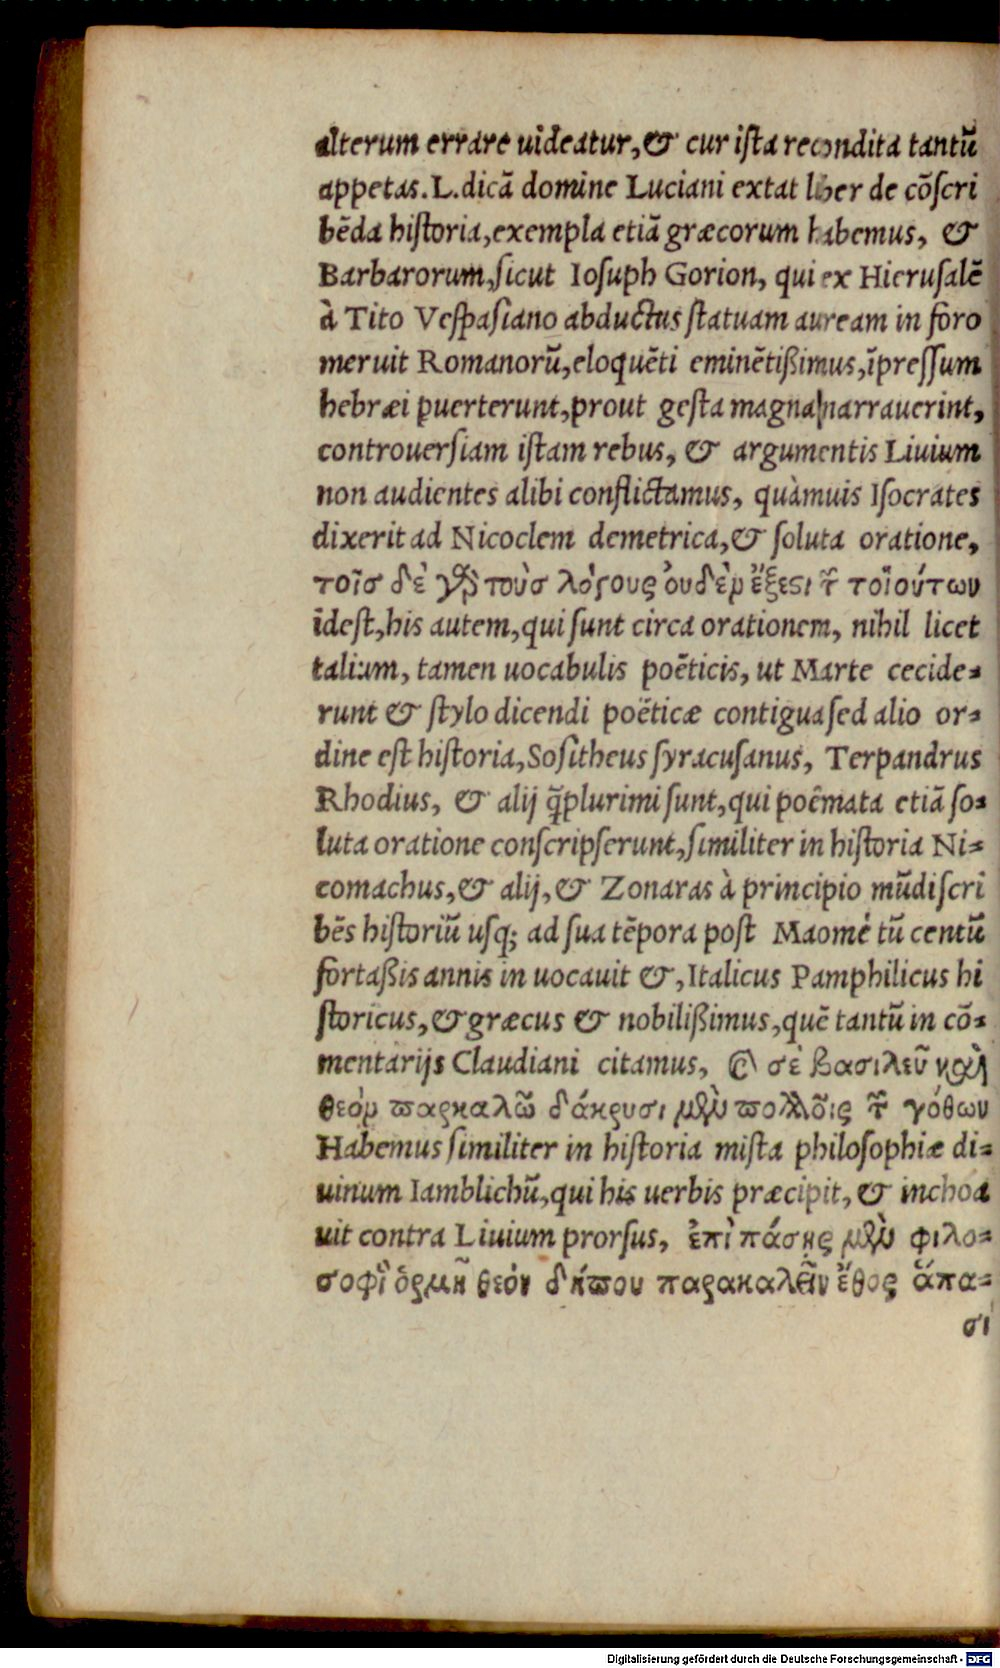 alterum errare uideatur,& cur iſta recondita tantũ
appetas. L. dicã domine Luciani extat liber de cõſcri
bẽda hiſtoria,exempla etiã græcorum habemus, &
Barbarorum,ſicut Ioſuph Gorion, qui ex Hieruſalẽ
à Tito Veſpaſiano abductus ſtatuam auream in foro
meruit Romanorũ,eloquẽti eminẽtißimus,ĩpreſſum
hebræi puerterunt,prout geſta magna narrauerint,
controuerſiam iſtam rebus, & argumentis Liuium
non audientes alibi conflictamus, quàmuis Iſocrates
dixerit ad Nicoclem demetrica,& ſoluta oratione,
τοῖσ δὲ τοὺσ λόγους ὀυδὲν ἔξεϛι τῶν τοιούτων
idest,his autem,qui ſunt circa orationem, nihil licet
talium, tamen uocabulis poëticis, ut Marte cecide-
runt & ſtylo dicendi poëticæ contigua ſed alio or-
dine eſt hiſtoria,Soſitheus ſyracuſanus, Terpandrus
Rhodius, & alij q̃plurimi ſunt,qui poëmata etiã ſo-
luta oratione conſcripſerunt,ſimiliter in hiſtoria Ni-
comachus,& alij,& Zonaras à principio mũdi ſcri
bẽs hiſtoriũ uſq; ad ſua tẽpora poſt Maomé tũ centũ
fortaßis annis in uocauit &,Italicus Pamphilicus hi
ſtoricus,& græcus & nobilißimus,quẽ tantũ in cõ-
mentarijs Claudiani citamus, σὲ βασιλεῦ καὶ
θεὸν παρακαλῶ δάκρυσι μὲν πολλοῖς τῶν γόθων
Habemus ſimiliter in hiſtoria miſta philoſophiæ di-
uinum Iamblichũ,qui his uerbis præcipit, & inchoa
uit contra Liuium prorſus, ἐπὶ πάσης μὲν φιλο-
σοφί ὁρμῇ θεὸν δήπου παρακαλεῖν ἔθος ἅπα-
σι
Digitalisierung gefördert durch die Deutsche Forschungsgemeinschaft - DFG